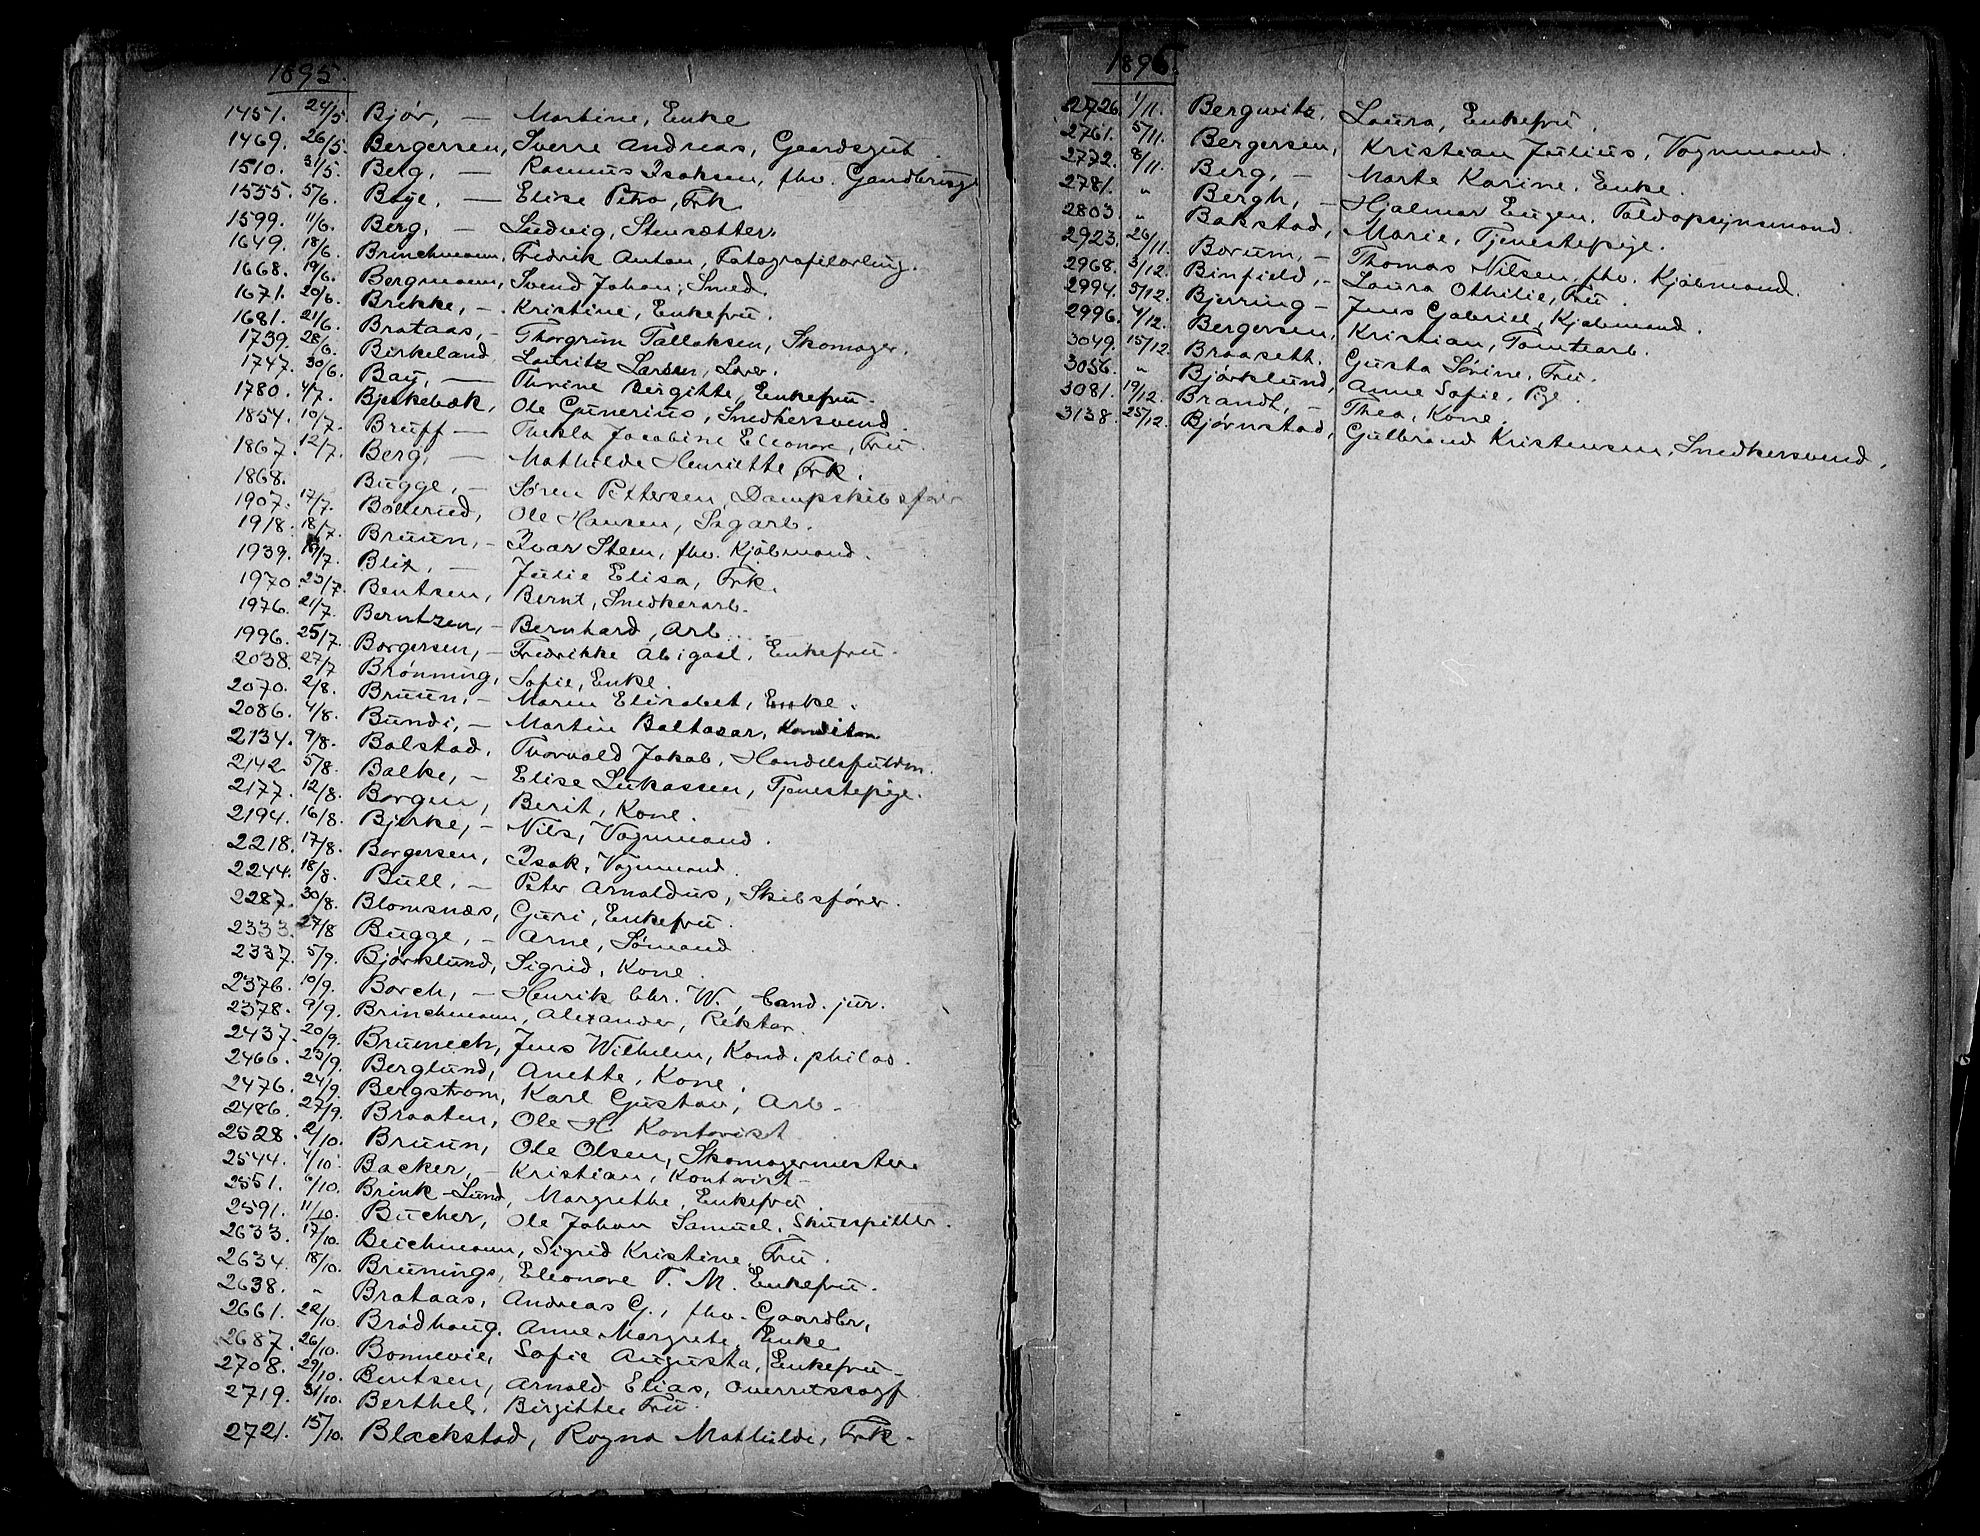 1895.
1457. 24/5. Bjør, — Martine, Enke
1469. 26/5. Bergersen, Sverre Andreas, Gaardsgut.
1510. 31/5. Berg, — Rasmus Isaksen, fhv.
1555. 5/6. Boye, — Elise Petra, Frk
1599. 11/6. Berg, — Ludvig, Stensætter
1649. 18/6. Brinchmann, Fredrik Anton, Fotografilærling.
1668. 19/6. Bergmann, Svend Johan, Smed.
1671. 20/6. Brekke, — Kristine, Enkefru.
1681. 21/6. Brataas, — Thorgrim Tallaksen, Skomager.
1739. 28/6. Birkeland, Lauritz Larsen,
1747. 30/6. Bay, — Thrine Birgitte, Enkefru.
1780. 4/7. Bjerkebæk, Ole Gunerius, Snedkersvend.
1854. 10/7. Bruff — Thekla Jacobine Eleonore, Fru.
1867. 12/7. Berg, — Mathilde Henriette Frk.
1868. Bugge, — Søren Pettersen, Dampskibsfører
1907. 17/7. Bollerud, Ole Hansen, Sagarb.
1918. 18/7. Bruun, — Ivar Steen, fhv. Kjøbmand.
1939. 19/7. Blix, — Julie Elisa, Frk.
1970 23/7. Bentsen, Bernt, Snedkerarb.
1976. 21/7. Berntzen, — Bernhard, Arb.
1996. 25/7. Borgersen, — Fredrikke Abigael, Enkefru.
2038. 27/7 Brønning, Sofie, Enke.
2070. 2/8. Bruun, — Maren Elisabet, Enke.
2086. 4/8. Bundi, — Martin Baltasar, Konditor
2134. 9/8. Bolstad, Thorvald Jakob, Handelsfuldm.
2142 5/8. Balke, — Elise Lukassen, Tjenestepige.
2177. 12/8. Borgen, Berit, Kone.
2194. 16/8. Bjerke, — Nils, Vognmand.
2218. 17/8. Borgersen, Isak, Vognmand.
2244. 18/8. Bull, — Peter Arnoldus, Skibsfører.
2287. 30/8. Blomsnæs, Guri, Enkefru.
2333. 27/8 Bugge, — Arne, Sømand
2337. 5/9. Bjørklund, Sigrid, Kone.
2376. 10/9. Borch, — Henrik Chr. W., Cand. jur.
2378. 9/9. Brinchmann, Alexander, Rektor.
2437. 20/9. Brunech, Jens Wilhelm, Kand. philos.
2466. 23/9. Berglund, Anette, Kone.
2476. 24/9. Bergstrøm, Karl Gustav, Arb.
2486. 27/9. Braaten, Ole H. Kontorist
2528. 2/10. Bruun, Ole Olsen, Skomagermester
2544. 4/10. Backer, — Kristian, Kontorist —
2551. 6/10. Brink-Lund, Margrethe, Enkefru
2591. 11/10. Bucher, Ole Johan Samuel, Skuespiller.
2633. 17/10. Beichmann, Sigrid Kristine, Fru.
2634. 18/10. Brunings, Eleonore T. M. Enkefru.
2638. " Brataas, Andreas G., fhv. Gaardbr,
2661. 22/10. Brødhaug, Anne Margrete, Enke
2687. 26/10. Bonnevie, Sofie Augusta, Enkefru —
2708. 29/10. Bentsen, Arnold Elias, Overretssagf.
2719. 31/10. Berthel, Birgitte Fru.
2721. 15/10. Blackstad, Ragna Mathilde, Frk.
1896.
2726. 1/11. Bergwitz, Laura, Enkefru.
2761. 5/11. Bergersen, Kristian Julius, Vognmand.
2772. 8/11. Berg, — Marte Karine, Enke.
2781. " Bergh, — Hjalmar Eugen, Toldopsynsmand.
2803. " Bakstad, Marie, Tjenestepige.
2923. 26/11. Borum, — Thomas Nilsen, fhv. Kjøbmand.
2968. 3/12. Binfield, — Laura Othilie, Fru.
2994. 5/12. Bjerring — Jens Gabriel, Kjøbmand.
2996. 4/12. Bergersen, Kristian, Tomtearb.
3049. 15/12. Braaseth. Gusta Sørine, Fru.
3056. " Bjørklund, Anne Sofie, Pige.
3081. 19/12. Brandt, — Thea, Kone.
3138. 25/12. Bjørnstad, Gulbrand Kristensen, Snedkersvend.